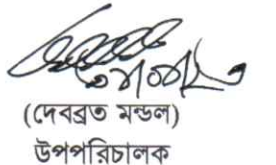 (দেবব্রত মন্ডল)
উপপরিচালক